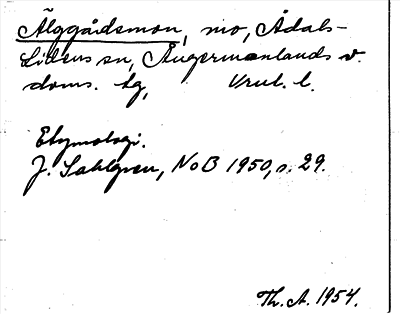 Älggårdsmon, mo, Ådals-
Lidens sn, Ångermanlands v.
doms. tg, Vnl. l.
Etymologi.
J. Sahlgren, NoB 1950, s. 29.
Th. A. 1954.